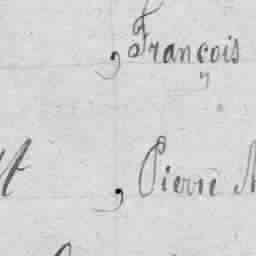 , François
"
, Pierre